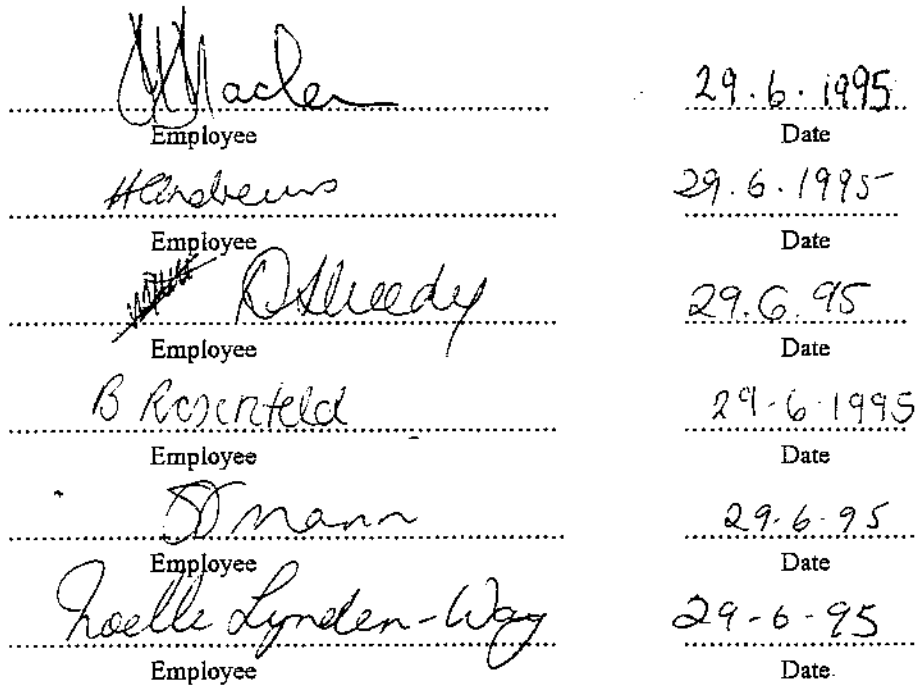 29.6.1995
Employee Date
H Andrews 29.6.1995
Employee Date
D Sheedy 29.6.95
Employee Date
B Rosenfeld 29-6-1995
Employee Date
Mann 29-6-95
Employee Date
Noelle Lynden-Way 29-6-95
Employee Date